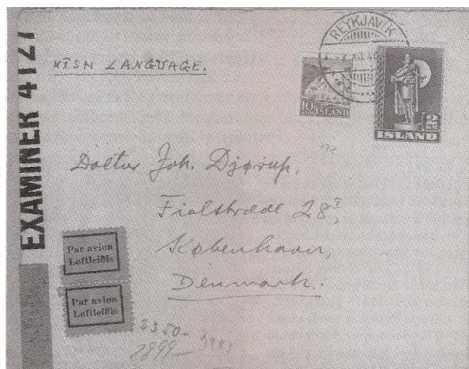 EXAMINER 4127
NISH LANGUAGE.
REYKJAVÍK
10
ISLAND
2
ISLAND
Doctor Joh. Djørup,
Fiolstræde 28
København,
Denmark.
Par avion
Loftleiðis
Par avion
Loftleiðis
3350-
1899-